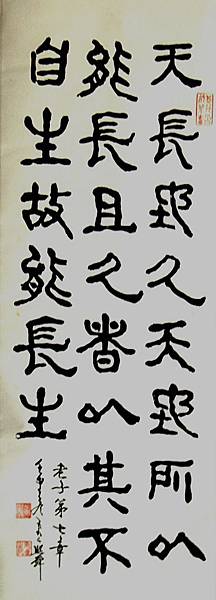 天長地久天地所以
能長且久者以其不
自生故能長生
老子第七章